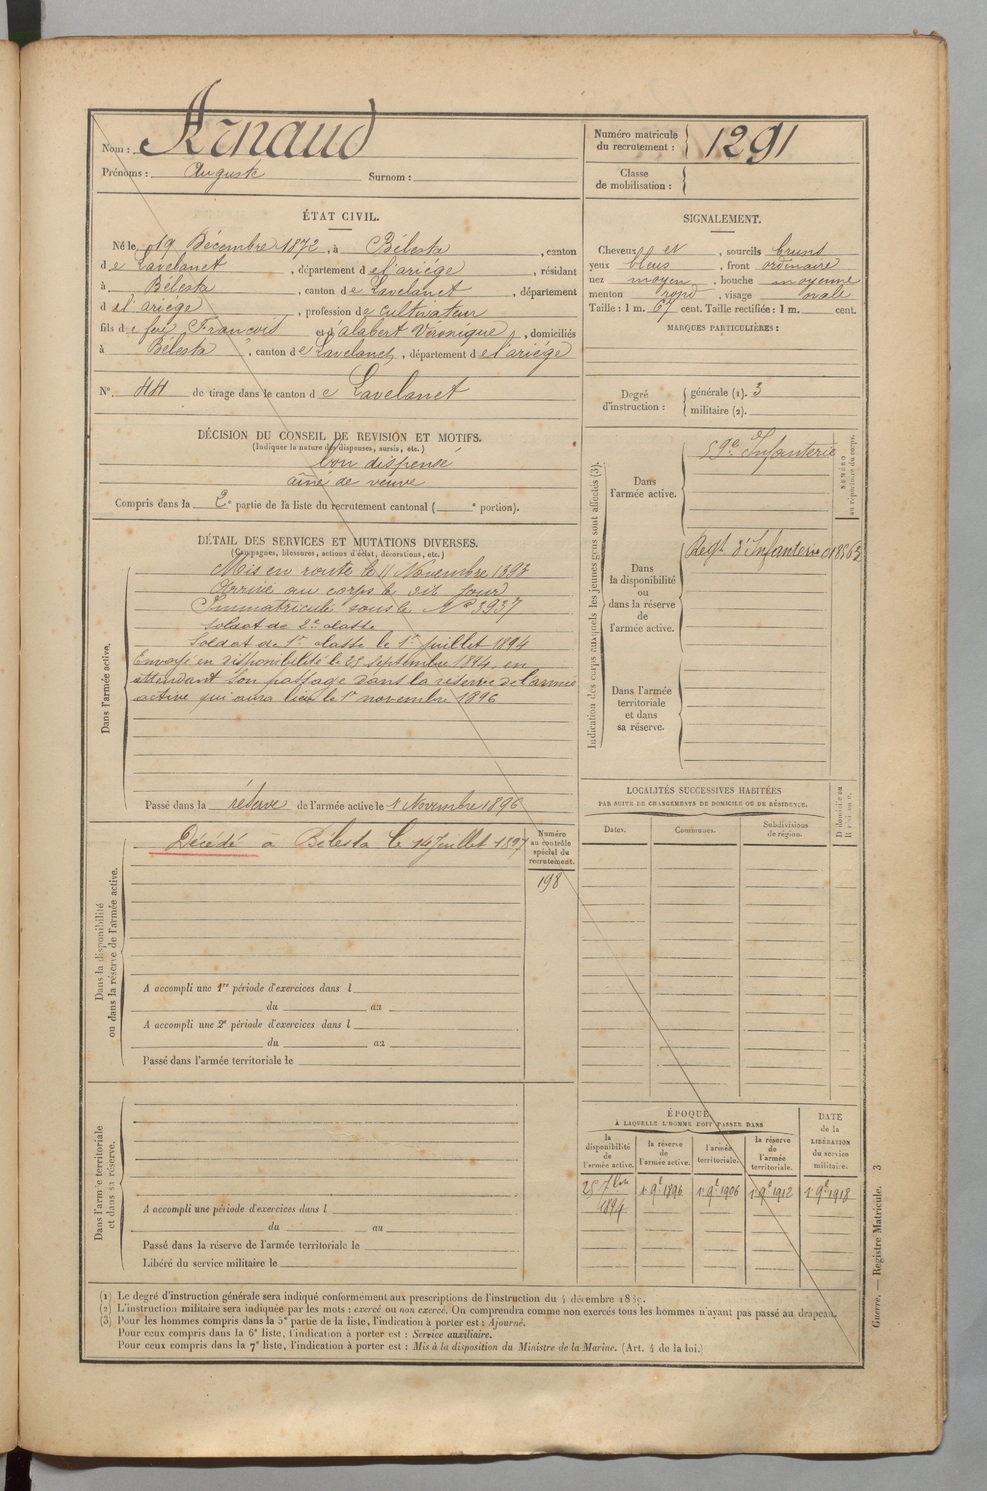 Nom : Arnaud
Prénoms : Auguste Surnom :
Numéro matricule
du recrutement : 1291
Classe
de mobilisation :
ÉTAT CIVIL.
Né le 19 Décembre 1872, à Bélesta, canton
de Lavelanet, département de l'ariége, résidant
à Bélesta, canton de Lavelanet, département
d el'ariége, profession de cultivateur
fils de feu François et d alabert Véronique, domiciliés
à Bélesta, canton de Lavelanet, département de l'ariége
N° 44 de tirage dans le canton de Lavelanet
SIGNALEMENT.
Cheveux et, sourcils bruns
yeux bleus, front ordinaire
nez moyen, bouche moyenne
menton rond, visage ovale
Taille : 1 m. 67 cent. Taille rectifiée : 1 m. cent.
MARQUES PARTICULIÈRES :
Degré
d'instruction :
générale (1). 3
militaire (2).
DÉCISION DU CONSEIL DE REVISION ET MOTIFS.
(Indiquer la nature des dispenses, sursis, etc.)
bon dispensé
aîné de veuve
Compris dans la 2e partie de la liste du recrutement cantonal ( e portion).
DÉTAIL DES SERVICES ET MUTATIONS DIVERSES.
(Campagnes, blessures, actions d'éclat, décorations, etc.)
Dans l'armée active.
Mis en route le 11 Novembre 1893
Arrivé au corps le dit jour
Immatriculé sous le N° 3937
Soldat de 2e classe
Soldat de 1re classe le 1er juillet 1894
Envoyé en disponibilité le 25 septembre 1894, en
attendant son passage dans la réserve de l'armée
active qui aura lieu le 1er novembre 1896
Passé dans la réserve de l'armée active le 1 Novembre 1896
Indication des corps auxquels les jeunes gens sont affectés (3).
NUMÉRO
au répertoire du corps.
Dans
l'armée active.
59e Infanterie
Dans
la disponibilité
ou
dans la réserve
de
l'armée active.
Régt d'Infanterie 018563
Dans l'armée
territoriale
et dans
sa réserve.
LOCALITÉS SUCCESSIVES HABITÉES
PAR SUITE DE CHANGEMENTS DE DOMICILE OU DE RÉSIDENCE.
Dates.
Communes.
Subdivisions
de région.
Dans la disponibilité
ou dans la réserve de l'armée active.
Décédé à Bélesta le 14 Juillet 1897
Numéro
au contrôle
spécial du
recrutement.
198
A accompli une 1re période d'exercices dans l
du au
A accompli une 2e période d'exercices dans l
du au
Passé dans l'armée territoriale le
Dans l'armée territoriale
et dans sa réserve.
A accompli une période d'exercices dans l
du au
Passé dans la réserve de l'armée territoriale le
Libéré du service militaire le
ÉPOQUE
À LAQUELLE L'HOMME DOIT PASSER DANS
la
disponibilité
de
l'armée active.
la réserve
de
l'armée active.
l'armée
territoriale.
la réserve
de
l'armée
territoriale.
DATE
de la
LIBÉRATION
du service
militaire.
25 7bre
1894
1er 9e 1896
1er 9e 1906
1er 9e 1912
1er 9e 1918
(1) Le degré d'instruction générale sera indiqué conformément aux prescriptions de l'instruction du 4 décembre
(2) L'instruction militaire sera indiquée par les mots : exercé ou non exercé. On comprendra comme non exercés tous les hommes n'ayant pas passé au drapeau.
(3) Pour les hommes compris dans la 5e partie de la liste, l'indication à porter est : Ajourné.
Pour ceux compris dans la 6e liste, l'indication à porter est : Service auxiliaire.
Pour ceux compris dans la 7e liste, l'indication à porter est : Mis à la disposition du Ministre de la Marine. (Art. 4 de la loi.)
Guerre. — Registre Matricule. 3